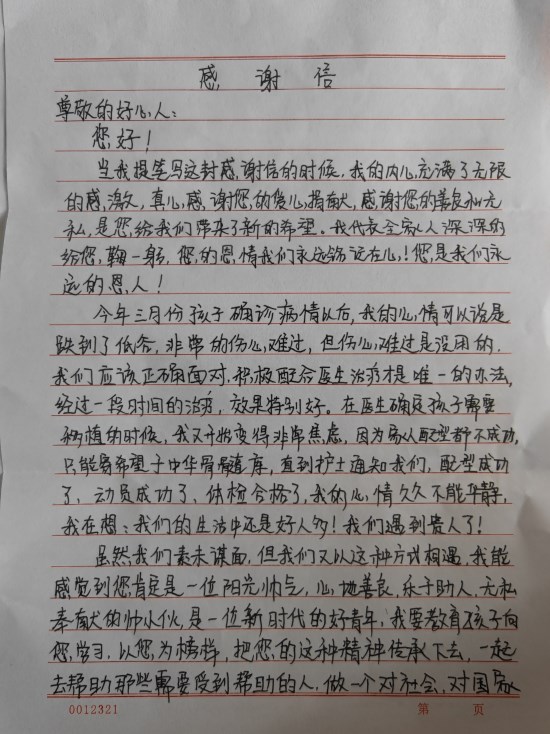 感谢信
尊敬的好心人：
您好！
当我提笔写这封感谢信的时候，我的内心充满了无限
的感激，真心感谢您的爱心捐献，感谢您的善良和无
私，是您给我们带来了新的希望。我代表全家人深深的
给您鞠一躬，您的恩情我们永远铭记在心！您是我们永
远的恩人！
今年三月份孩子确诊病情以后，我的心情可以说是
跌到了低谷，非常的伤心难过，但伤心难过是没用的，
我们应该正确面对，积极配合医生治疗才是唯一的办法，
经过一段时间的治疗，效果特别好。在医生确定孩子需要
移植的时候，我又开始变得非常焦虑，因为家人配型都不成功，
只能寄希望于中华骨髓库，直到护士通知我们，配型成功
了、动员成功了、体检合格了，我的心情久久不能平静，
我在想：我们的生活中还是好人多！我们遇到贵人了！
虽然我们素未谋面，但我们又以这种方式相遇，我能
感觉到您肯定是一位阳光帅气，心地善良，乐于助人，无私
奉献的帅小伙，是一位新时代的好青年，我要教育孩子向
您学习，以您为榜样，把您的这种精神传承下去，一起
去帮助那些需要受到帮助的人，做一个对社会，对国家
0012321 第 页